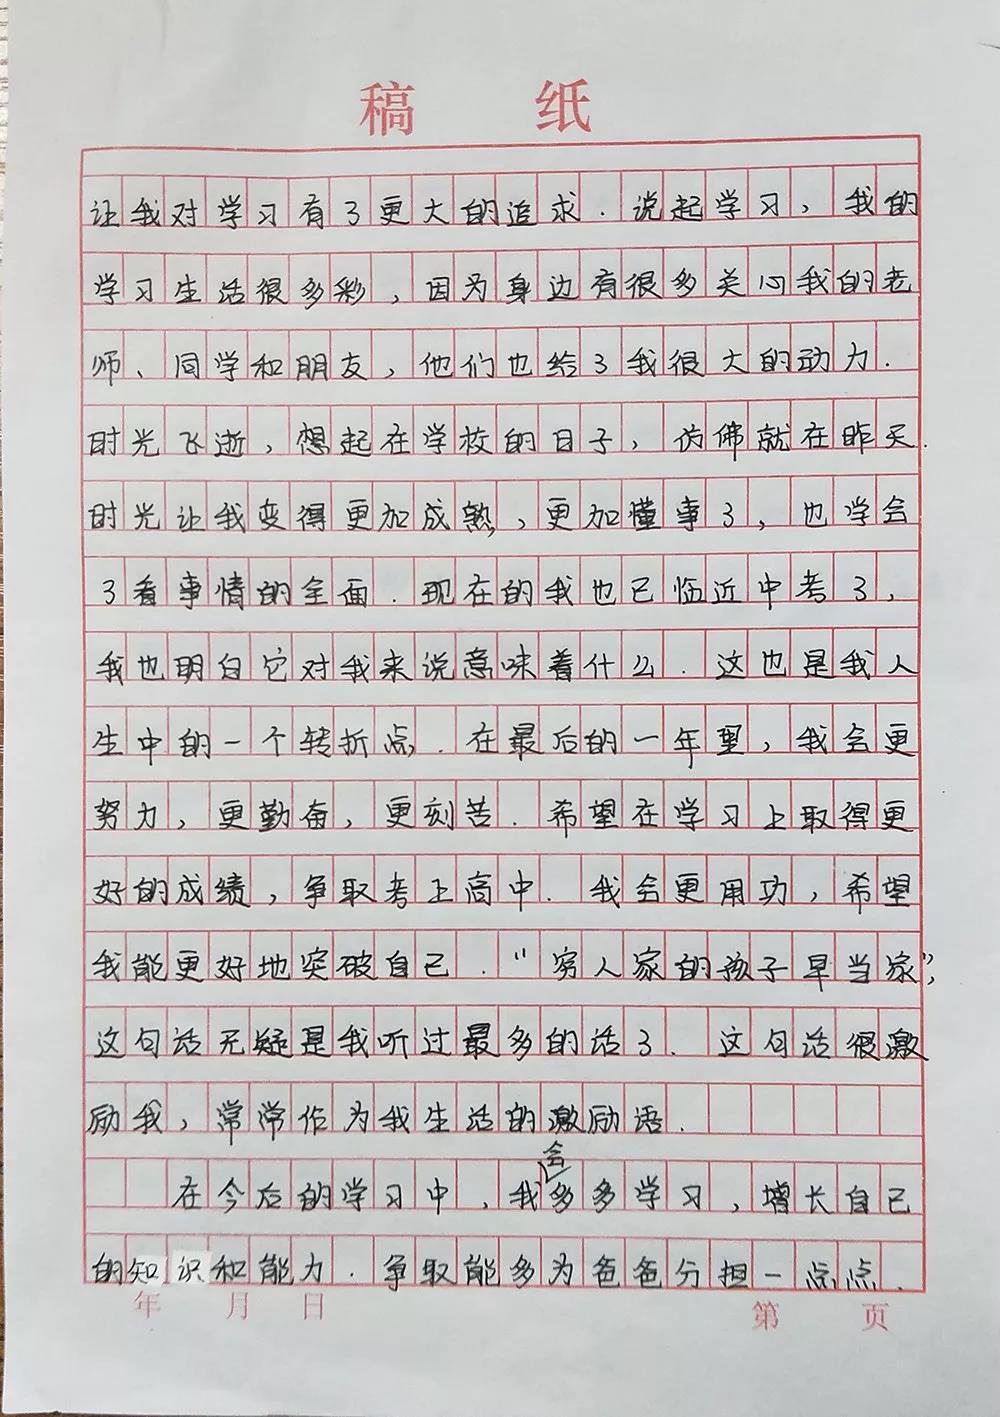 稿 纸
让我对学习有了更大的追求.说起学习,我的
学习生活很多彩,因为身边有很多关心我的老
师、同学和朋友,他们也给了我很大的动力.
时光飞逝,想起在学校的日子,仿佛就在昨天.
时光让我变得更加成熟,更加懂事了,也学会
了看事情的全面.现在的我也已临近中考了,
我也明白它对我来说意味着什么.这也是我人
生中的一个转折点.在最后的一年里,我会更
努力,更勤奋,更刻苦.希望在学习上取得更
好的成绩,争取考上高中.我会更用功,希望
我能更好地突破自己."穷人家的孩子早当家",
这句话无疑是我听过最多的话了.这句话很激
励我,常常作为我生活的激励语.
在今后的学习中,我会多多学习,增长自己
的知识和能力.争取能多为爸爸分担一点点.
年 月 日 第 页